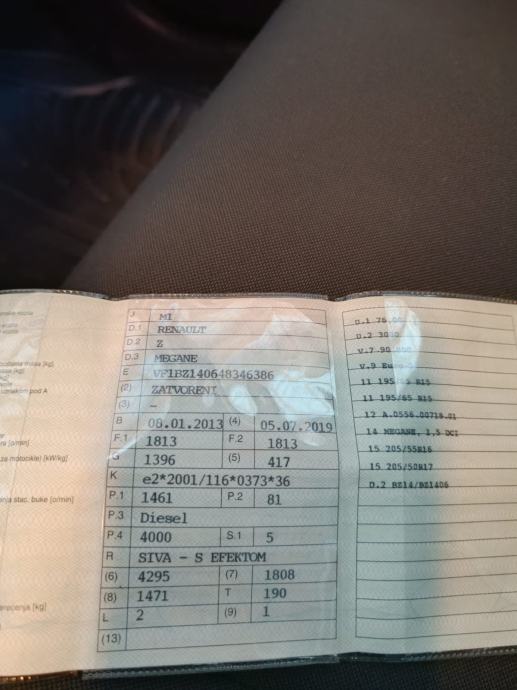 J M1
D.1 RENAULT
D.2 Z
D.3 MEGANE
E VF1BZ140648346386
(2) ZATVORENI
(3) -
B 08.01.2013 (4) 05.07.2019
F.1 1813 F.2 1813
G 1396 (5) 417
K e2*2001/116*0373*36
P.1 1461 P.2 81
P.3 Diesel
P.4 4000 S.1 5
R SIVA - S EFEKTOM
(6) 4295 (7) 1808
(8) 1471 T 190
L 2 (9) 1
(13)
D.1 76
D.2
V.7 90
V.9
11 195/65 R15
11 195/65 R15
12 A.0556.00718.01
14 MEGANE, 1,5 DCI
15 205/55R16
15 205/50R17
D.2 BZ14/BZ1406
masa [kg]
pod A
[o/min]
za motocikle) [kW/kg]
stac. buke [o/min]
[kg]